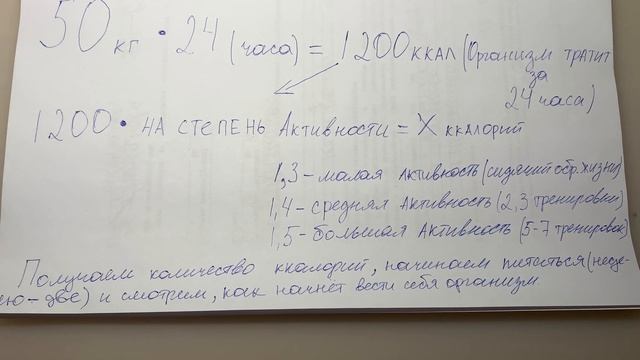 50 кг • 24 (часа) = 1200 ккал (Организм тратит
за
24 часа)
1200 • на степень Активности = X ккалорий
1,3 – малая Активность (сидячий обр. жизни)
1,4 – средняя Активность (2,3 тренировки)
1,5 – большая Активность (5-7 тренировок)
Получаем количество ккалорий, начинаем питаться (неде-
ю – две) и смотрим, как начнёт вести себя организм